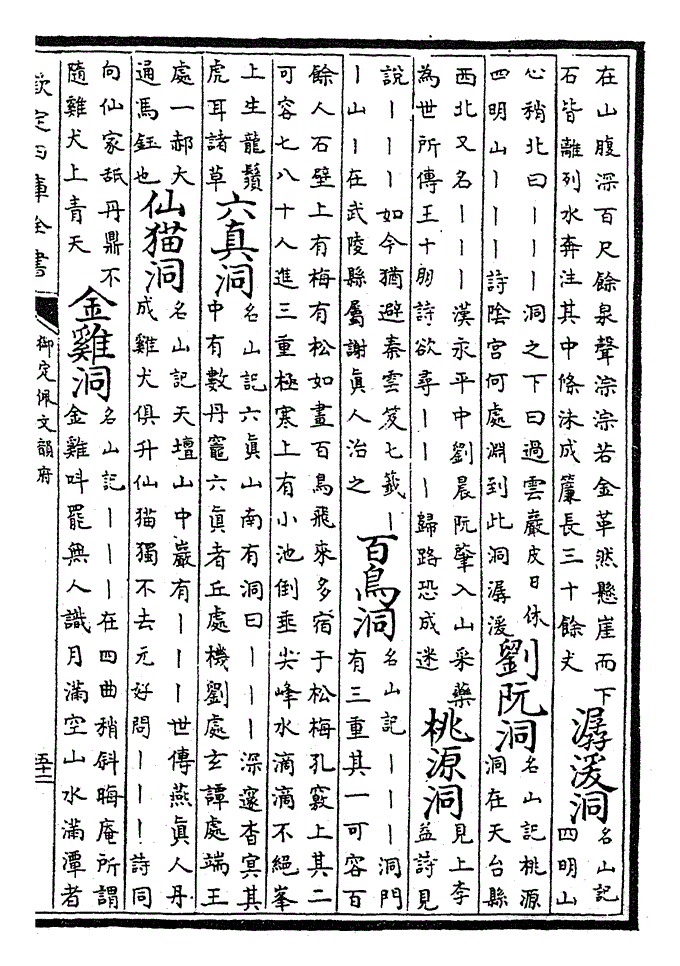 在山腹深百尺餘泉聲淙淙若金革然懸崖而下
石皆離列水奔注其中條沫成簾長三十餘丈
潺湲洞
名山記
四明山
心稍北曰丨丨丨洞之下曰過雲巖皮日休
四明山丨丨丨詩陰宮何處淵到此洞潺湲
劉阮洞
名山記桃源
洞在天台縣
西北又名丨丨丨漢永平中劉晨阮肇入山采藥
為世所傳王十朋詩欲尋丨丨丨歸路恐成迷
桃源洞
見上李
益詩見
說丨丨丨如今猶避秦雲笈七籤丨
丨山丨在武陵縣屬謝真人治之
百鳥洞
名山記丨丨丨洞門
有三重其一可容百
餘人石壁上有梅有松如畫百鳥飛來多宿于松梅孔竅上其二
可容七八十人進三重極寒上有小池倒垂尖峰水滴滴不絕峯
上生龍鬚
虎耳諸草
六真洞
名山記六真山南有洞曰丨丨丨深邃杳冥其
中有數丹竈六真者丘處機劉處玄譚處端王
處一郝大
通馬鈺也
仙猫洞
名山記天壇山中巖有丨丨丨世傳燕真人丹
成雞犬俱升仙猫獨不去元好問丨丨丨詩同
向仙家舐丹鼎不
隨雞犬上青天
金雞洞
名山記丨丨丨在四曲稍斜晦庵所謂
金雞呌罷無人識月滿空山水滿潭者
欽定四庫全書
御定佩文韻府
五十二